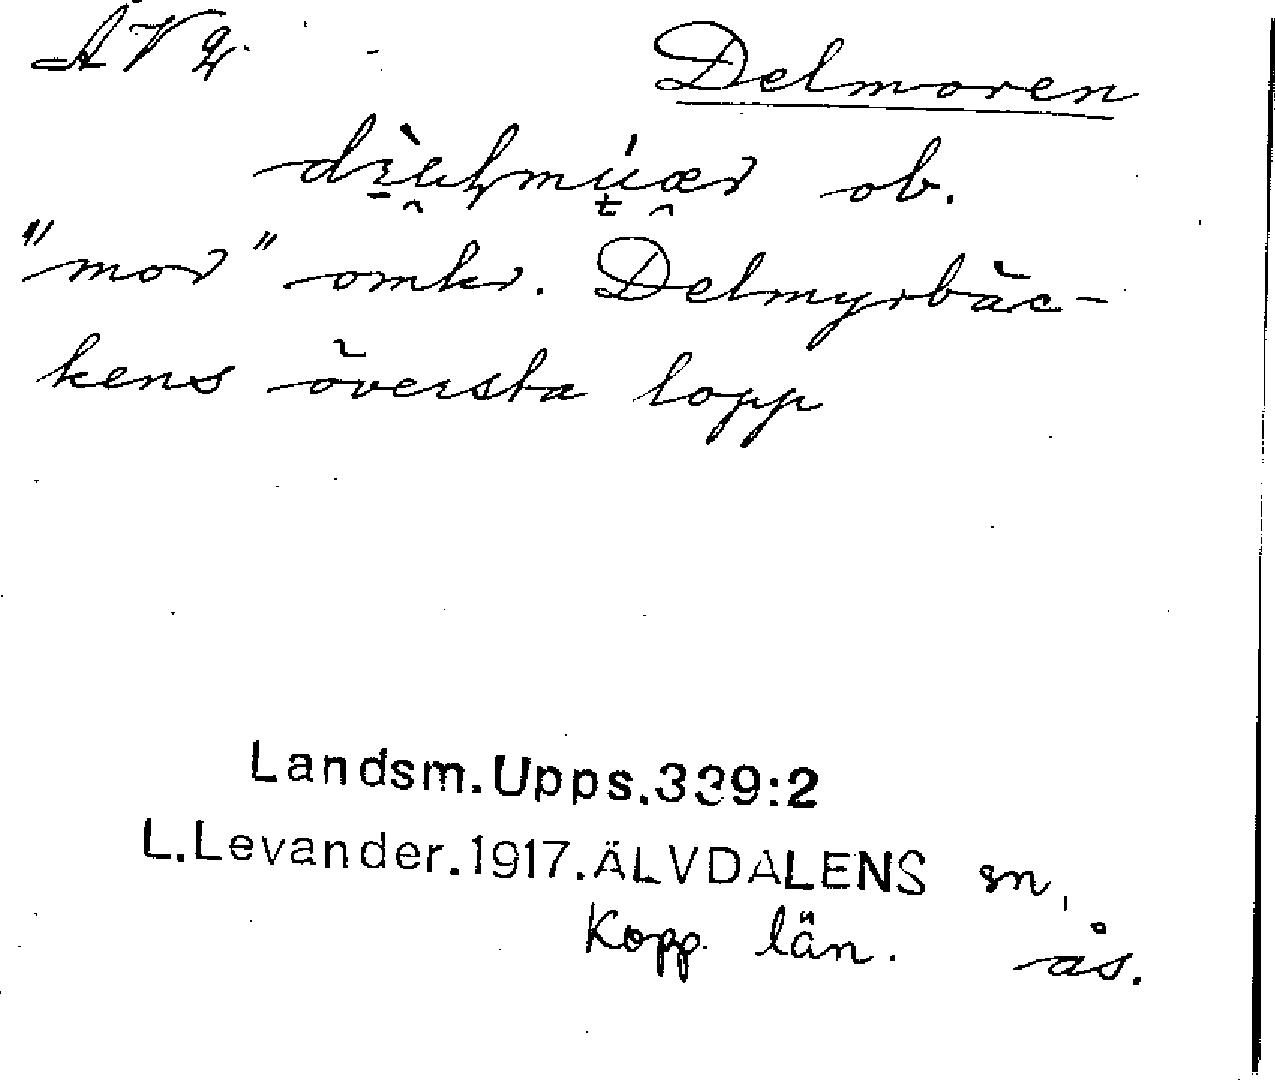 ÄV 2. Delmoren
ob.
"mor" omkr. Delmyrbäc-
kens översta lopp
Landsm.Upps.339:2
L.Levander.1917.ÄLVDALENS sn,
Kopp. län. ås.